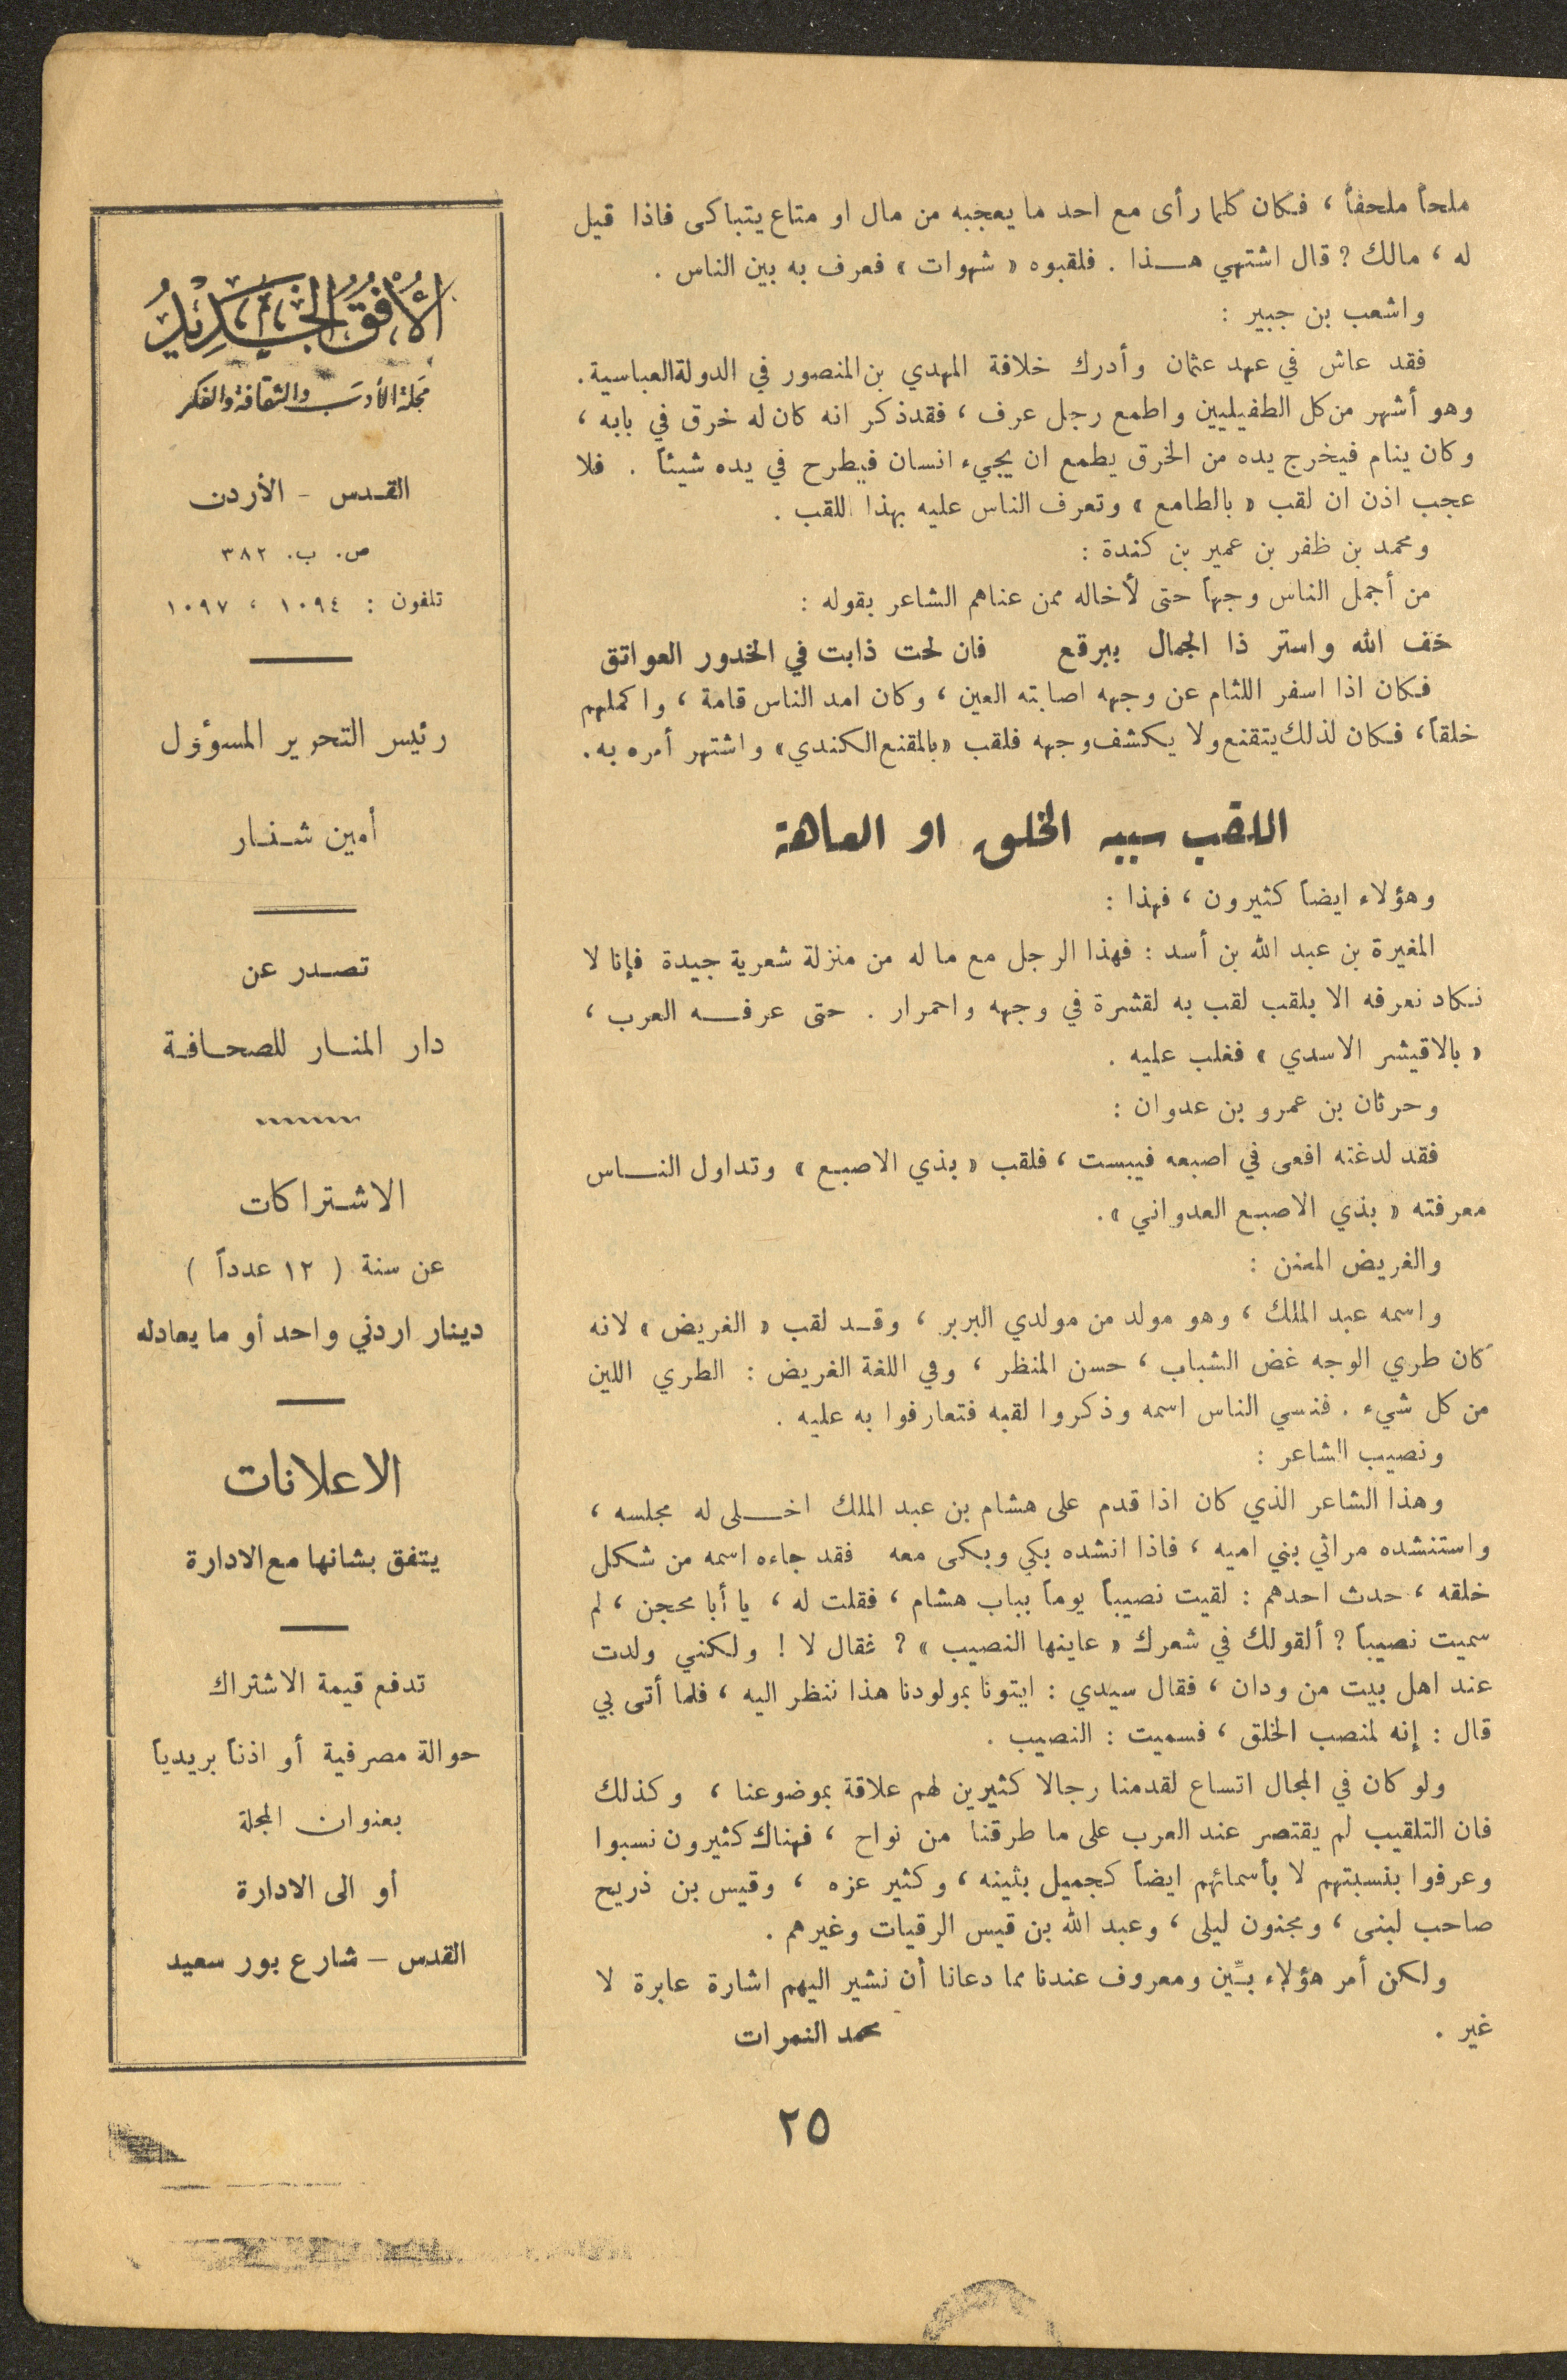 ملحاً ملحفاً ، فكان كلما رأى مع احد ما يعجبه من مال او متاع يتباكى فاذا قيل
له ، مالك ؟ قال اشتهي هذا . فلقبوه « شهوات » فعرف به بين الناس .
واشعب بن جبير :
فقد عاش في عهد عثمان وأدرك خلافة المهدي بن المنصور في الدولة العباسية .
وهو أشهر من كل الطفيليين واطمع رجل عرف ، فقد ذكر انه كان له خرق في بابه ،
وكان ينام فيخرج يده من الخرق يطمع ان يجيء انسان فيطرح في يده شيئاً . فلا
عجب اذن ان لقب « بالطامع » وتعرف الناس عليه بهذا اللقب .
ومحمد بن ظفر بن عمير بن كندة :
من أجمل الناس وجهاً حتى لأخاله ممن عناهم الشاعر بقوله :
خف الله واستر ذا الجمال ببرقع فان لحت ذابت في الخدور العواتق
فكان اذا اسفر اللثام عن وجهه اصابته العين ، وكان امد الناس قامة ، واكملهم
خلقاً ، فكان لذلك يتقنع ولا يكشف وجهه فلقب « بالمقنع الكندي » واشتهر أمره به .
اللقب سببه الخلق او العاهة
وهؤلاء ايضاً كثيرون ، فهذا :
المغيرة بن عبد الله بن أسد : فهذا الرجل مع ما له من منزلة شعرية جيدة فإنا لا
نكاد نعرفه الا بلقب لقب به لقشرة في وجهه واحمرار . حتى عرفه العرب ،
« بالاقيشر الاسدي » فغلب عليه .
وحرثان بن عمرو بن عدوان :
فقد لدغته افعى في اصبعه فيبست ، فلقب « بذي الاصبع » وتداول الناس
معرفته « بذي الاصبع العدواني » .
والغريض المغنن :
واسمه عبد الملك ، وهو مولد من مولدي البربر ، وقد لقب « الغريض » لانه
كان طري الوجه غض الشباب ، حسن المنظر ، وفي اللغة الغريض : الطري اللين
من كل شيء . فنسي الناس اسمه وذكروا لقبه فتعارفوا به عليه .
ونصيب الشاعر :
وهذا الشاعر الذي كان اذا قدم على هشام بن عبد الملك اخلى له مجلسه ،
واستنشده مراثي بني اميه ، فاذا انشده بكي وبكى معه فقد جاءه اسمه من شكل
خلقه ، حدث احدهم : لقيت نصيباً يوماً بباب هشام ، فقلت له ، يا أبا محجن ، لم
سميت نصيباً ؟ ألقولك في شعرك « عاينها النصيب » ؟ فقال لا ! ولكني ولدت
عند اهل بيت من ودان ، فقال سيدي : ايتونا بمولودنا هذا ننظر اليه ، فلما أتى بي
قال : إنه لمنصب الخلق ، فسميت : النصيب .
ولو كان في المجال اتساع لقدمنا رجالا كثيرين لهم علاقة بموضوعنا ، وكذلك
فان التلقيب لم يقتصر عند العرب على ما طرقنا من نواح ، فهناك كثيرون نسبوا
وعرفوا بنسبتهم لا بأسمائهم ايضاً كجميل بثينه ، وكثير عزه ، وقيس بن ذريح
صاحب لبنى ، ومجنون ليلى ، وعبد الله بن قيس الرقيات وغيرهم .
ولكن أمر هؤلاء بيّن ومعروف عندنا مما دعانا أن نشير اليهم اشارة عابرة لا
غير .
محمد النمرات
٢٥
الأفق الجديد
مجلة الأدب والثقافة والفكر
القدس - الأردن
ص. ب. ٣٨٢
تلفون : ١٠٩٤ ، ١٠٩٧
رئيس التحرير المسوؤل
أمين شنار
تصدر عن
دار المنار للصحافة
الاشتراكات
عن سنة ( ١٢ عدداً )
دينار اردني واحد أو ما يعادله
الاعلانات
يتفق بشانها مع الادارة
تدفع قيمة الاشتراك
حوالة مصرفية أو اذناً بريدياً
بعنوان المجلة
أو الى الادارة
القدس – شارع بور سعيد